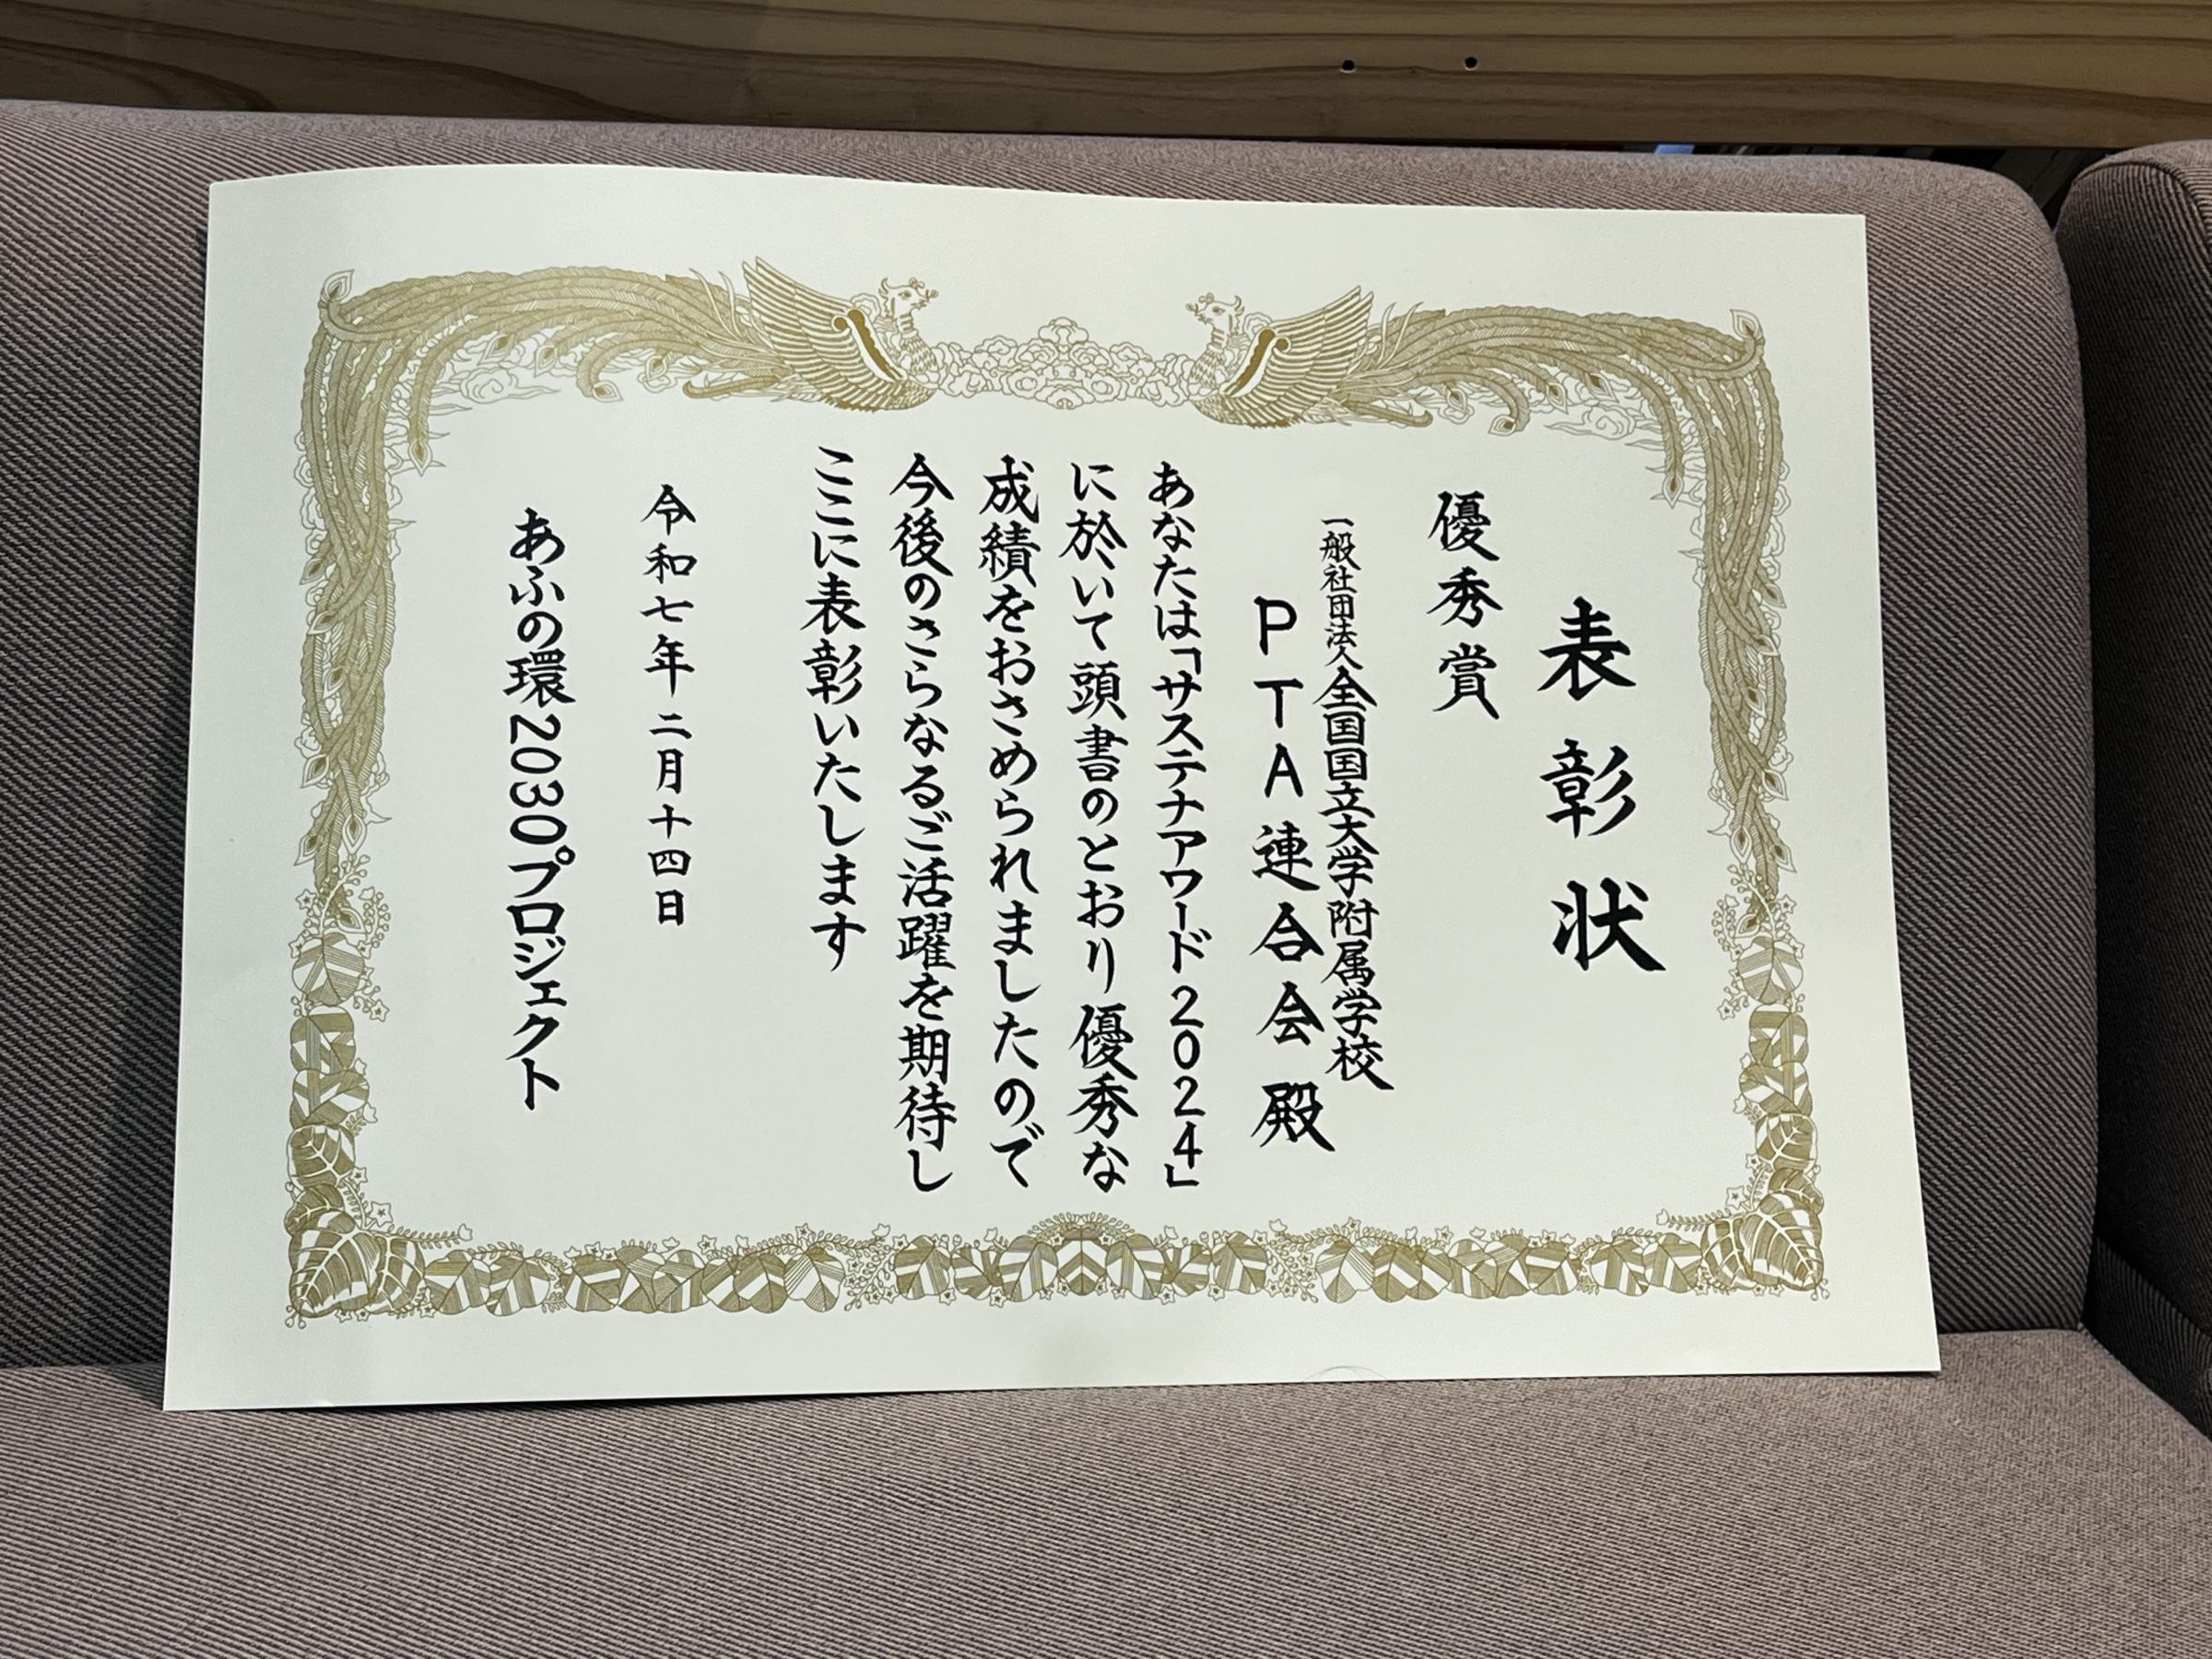 表彰状
優秀賞
一般社団法人全国国立大学附属学校
PTA連合会殿
あなたは「サステナアワード2024」
に於いて頭書のとおり優秀な
成績をおさめられましたので
今後のさらなるご活躍を期待し
ここに表彰いたします
令和七年二月十四日
あふの環2030プロジェクト